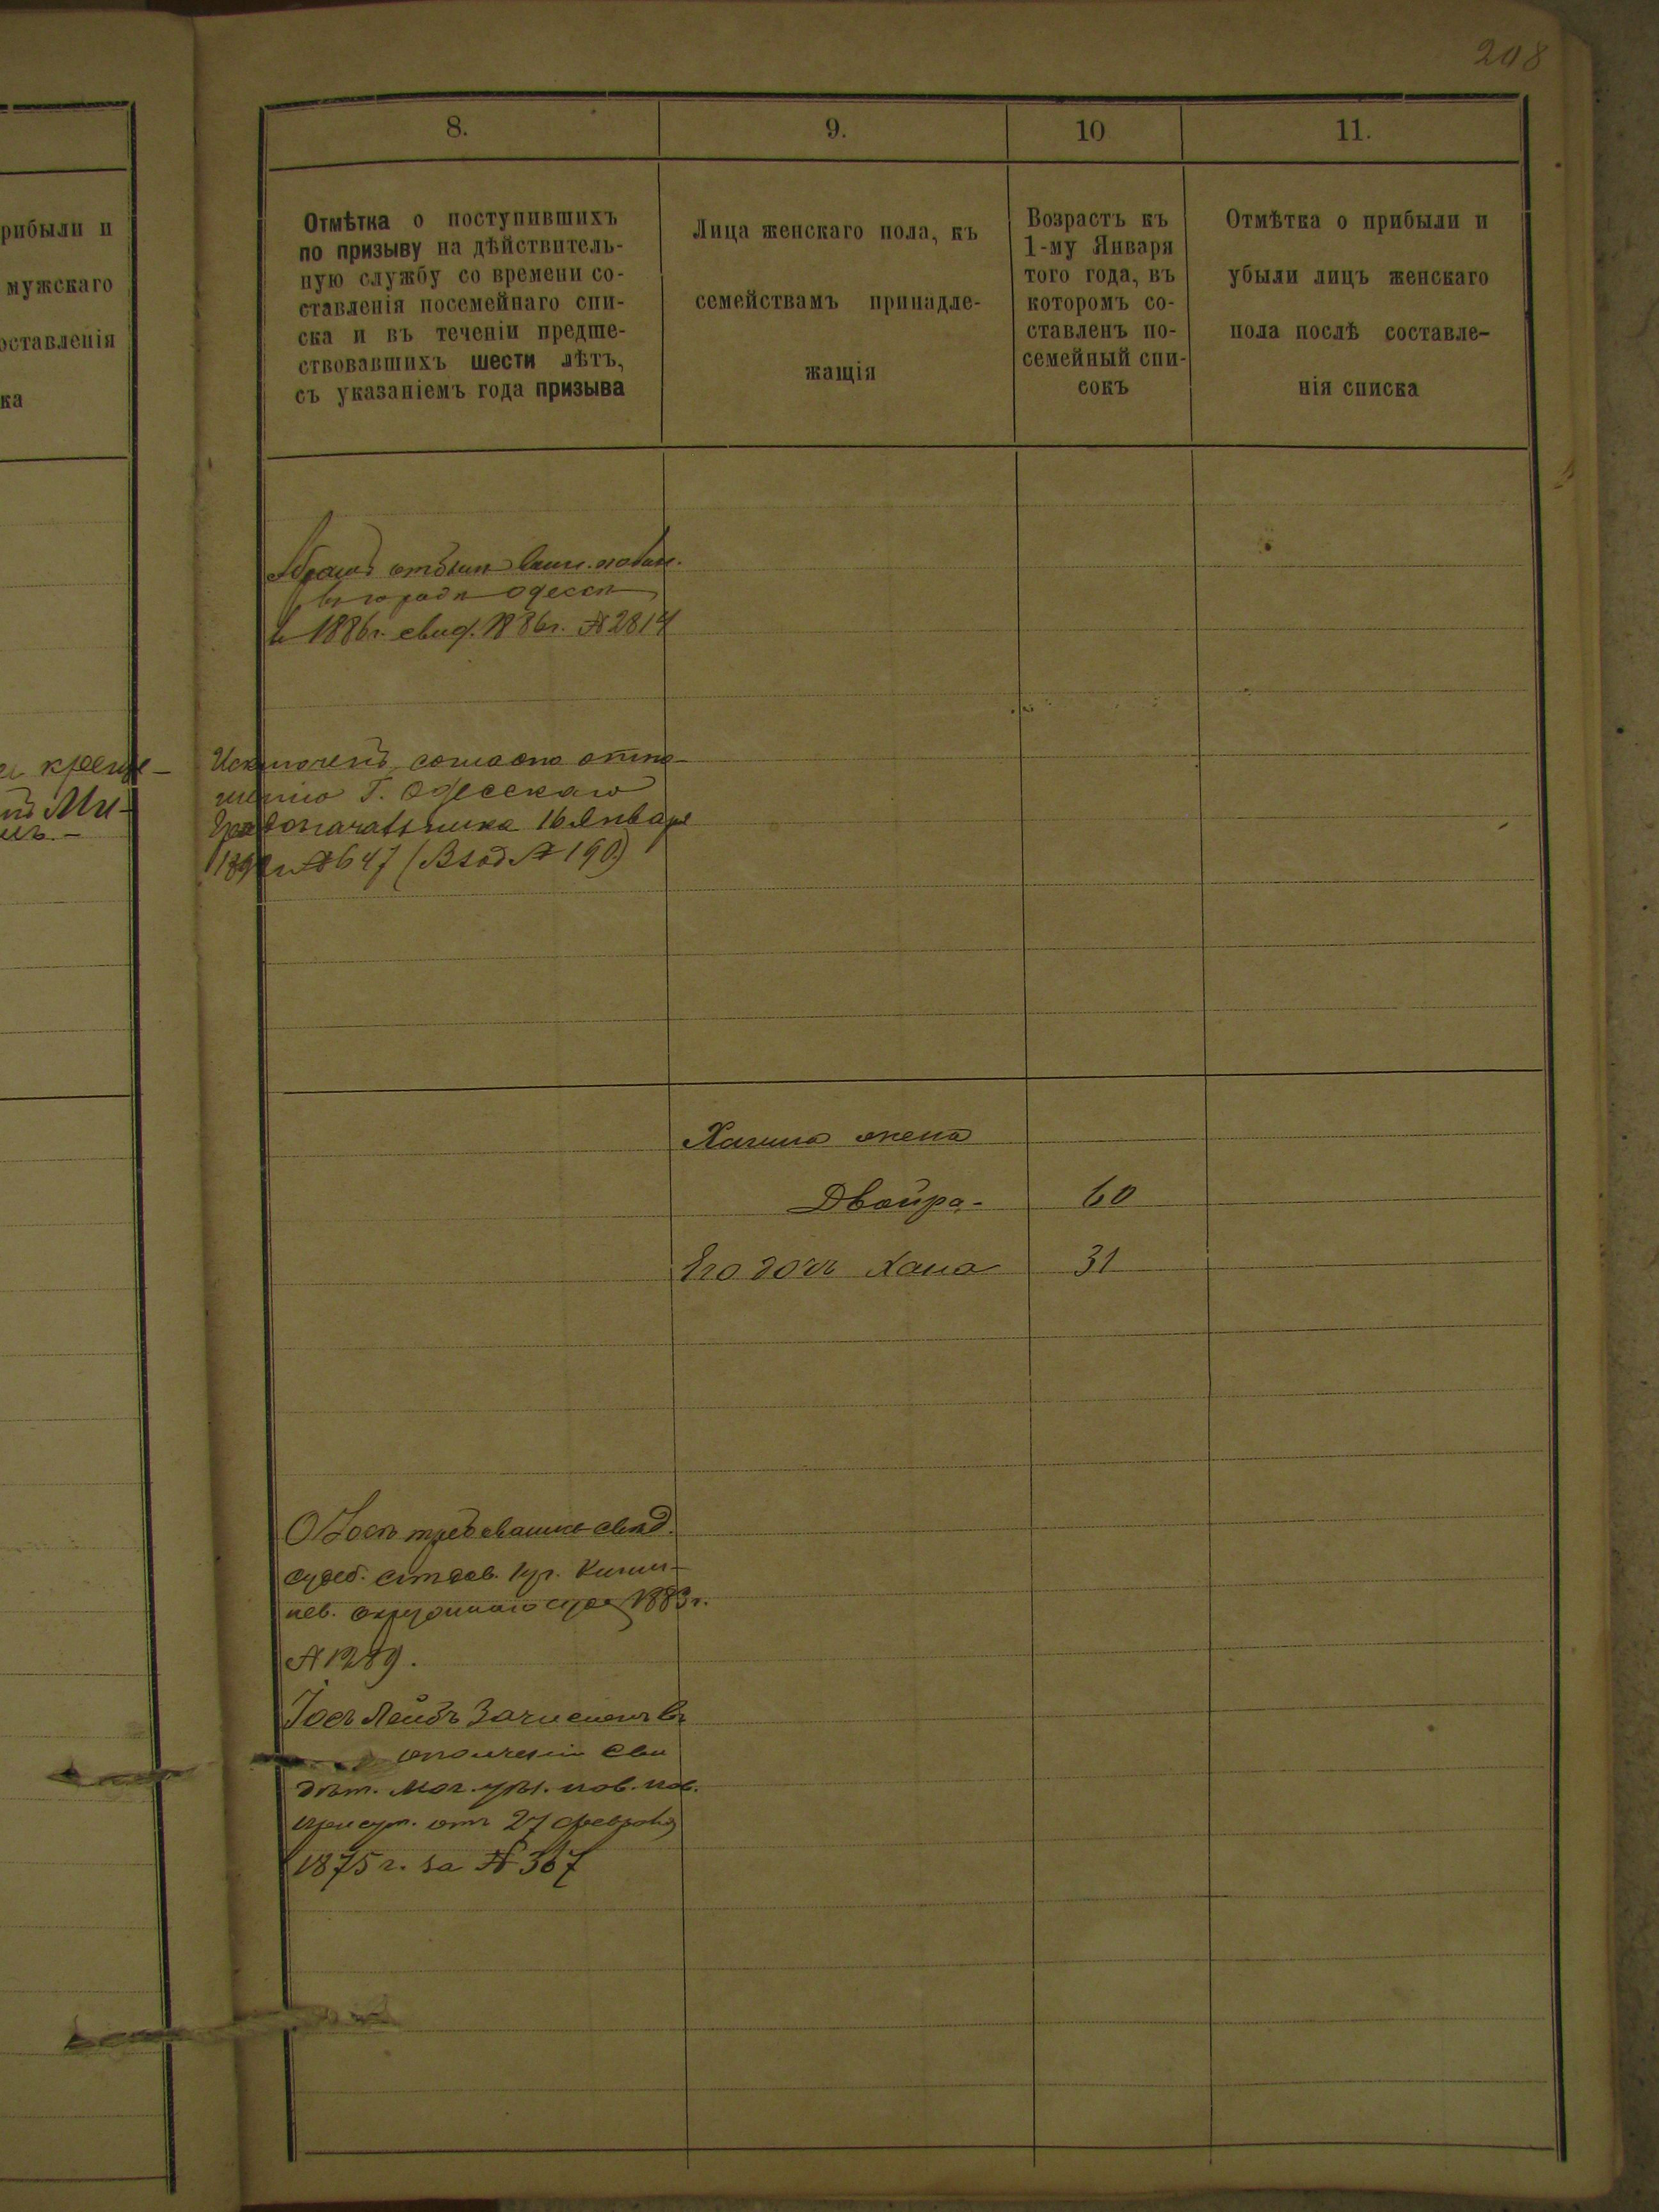 208
рибыли и
мужскаго
оставленія
ка
8.
9.
10
11.
Отмѣтка о поступившихъ
по призыву на дѣйствитель-
ную службу со времени со-
ставленія посемейнаго спи-
ска и въ теченіи предше-
ствовавшихъ шести лѣтъ,
съ указаніемъ года призыва
Лица женскаго пола, къ
семействамъ принадле-
жащія
Возрастъ къ
1-му Января
того года, въ
которомъ со-
ставленъ по-
семейный спи-
сокъ
Отмѣтка о прибыли и
убыли лицъ женскаго
пола послѣ составле-
нія списка
отбыл воин. повин.
в городѣ Одессѣ
в 1886 г. свид. 1886 г. № 2814
креще-
Ми-
Исключенъ согласно отно-
шенію Г. Одесскаго
Градоначальника 16 Января
№ 647 (Вход № 190)
Хаима жена
Двойра - 60
Его дочь Хана 31
судеб. Киши-
нев. окружнаго суда 1883 г.
№ 1289.
Іось Лейбъ Зачисленъ въ
ополченіе Сви
дѣт. Мог. уѣз. по в. пов.
присут. отъ 27 февраля
1875 г. за № 367